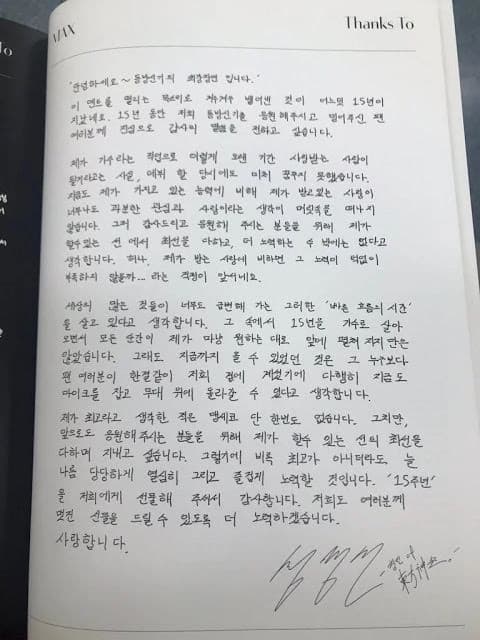 To
MAX
Thanks To
'안녕하세요~ 동방신기의 최강창민 입니다.'
이 멘트를 떨리는 목소리로 겨우겨우 뱉어낸 것이 어느덧 15년이
지났네요. 15년 동안 저희 동방신기를 응원해주시고 믿어주신 팬
여러분께 진심으로 감사의 말씀을 전하고 싶습니다.
제가 가수라는 직업으로 이렇게 오랜 기간 사랑받는 사람이
될거라고는 사실, 데뷔 할 당시에도 미처 꿈꾸지 못했습니다.
지금도 제가 가지고 있는 능력에 비해 제가 받고있는 사랑이
너무나도 과분한 관심과 사랑이라는 생각이 머릿속을 떠나지
않습니다. 그저 감사드리고 응원해 주시는 분들을 위해 제가
할수있는 선 에서 최선을 다하고, 더 노력하는 수 밖에는 없다고
생각합니다. 허나, 제가 받는 사랑에 비하면 그 노력이 턱없이
부족하지 않을까... 라는 걱정이 앞서네요.
세상의 많은 것들이 너무도 급변해 가는 그러한 '빠른 흐름의 시간'
을 살고 있다고 생각합니다. 그 속에서 15년을 가수로 살아
오면서 모든 순간이 제가 마냥 원하는 대로 앞에 펼쳐 지지만은
않았습니다. 그래도 지금까지 올 수 있었던 것은 그 누구보다
팬 여러분이 한결같이 저희 곁에 계셨기에 다행히 지금도
마이크를 잡고 무대 위에 올라갈 수 있다고 생각합니다.
제가 최고라고 생각한 적은 맹세코 단 한번도 없습니다. 그치만,
앞으로도 응원해주시는 분들을 위해 제가 할수 있는 선의 최선을
다하며 지내고 싶습니다. 그렇기에 비록 최고가 아니더라도 늘
나름 당당하게 열심히 그리고 즐겁게 노력할 것입니다. '15주년'
을 저희에게 선물해 주셔서 감사합니다. 저희도 여러분께
멋진 선물을 드릴 수 있도록 더 노력하겠습니다.
사랑합니다.